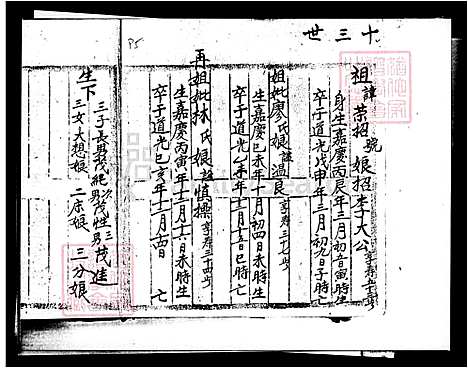 十三世
祖諱榮招號娘招李大公享壽五十三岁
身生嘉慶丙辰年三月初一日寅時生
卒于道光戊申年三月初九日子時亡
祖妣廖氏娘諡温良享寿三十七岁
生嘉慶己未年十月初四日未時生
卒于道光乙未年十二月十五日巳時亡
再祖妣林氏娘諡慎操享寿三十四岁
生嘉慶丙寅年十二月十六日未時生
卒于道光己亥年十一月十四日亡
生下
三子長男茂純次男茂性三男茂進
三女大想娘二床娘三分娘
P5